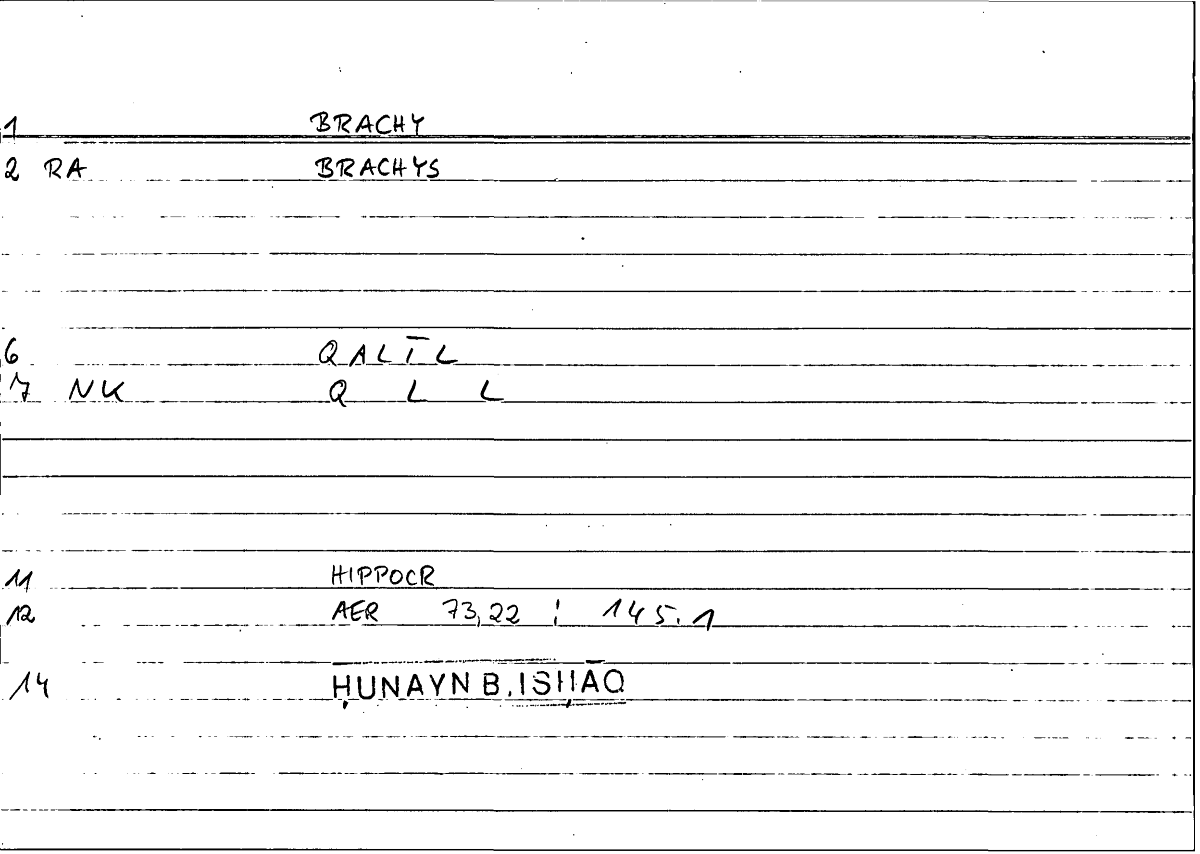 1 BRACHY
2 RA BRACHYS
6 QALĪL
7 NK Q L L
11 HIPPOCR
12 AER 73,22 ; 145.1
14 ḤUNAYN B. ISḤĀQ